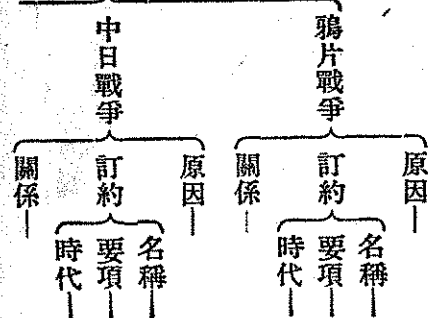 鴉片戰爭
原因
訂約
名稱
要項
時代
關係
中日戰爭
原因
訂約
名稱
要項
時代
關係